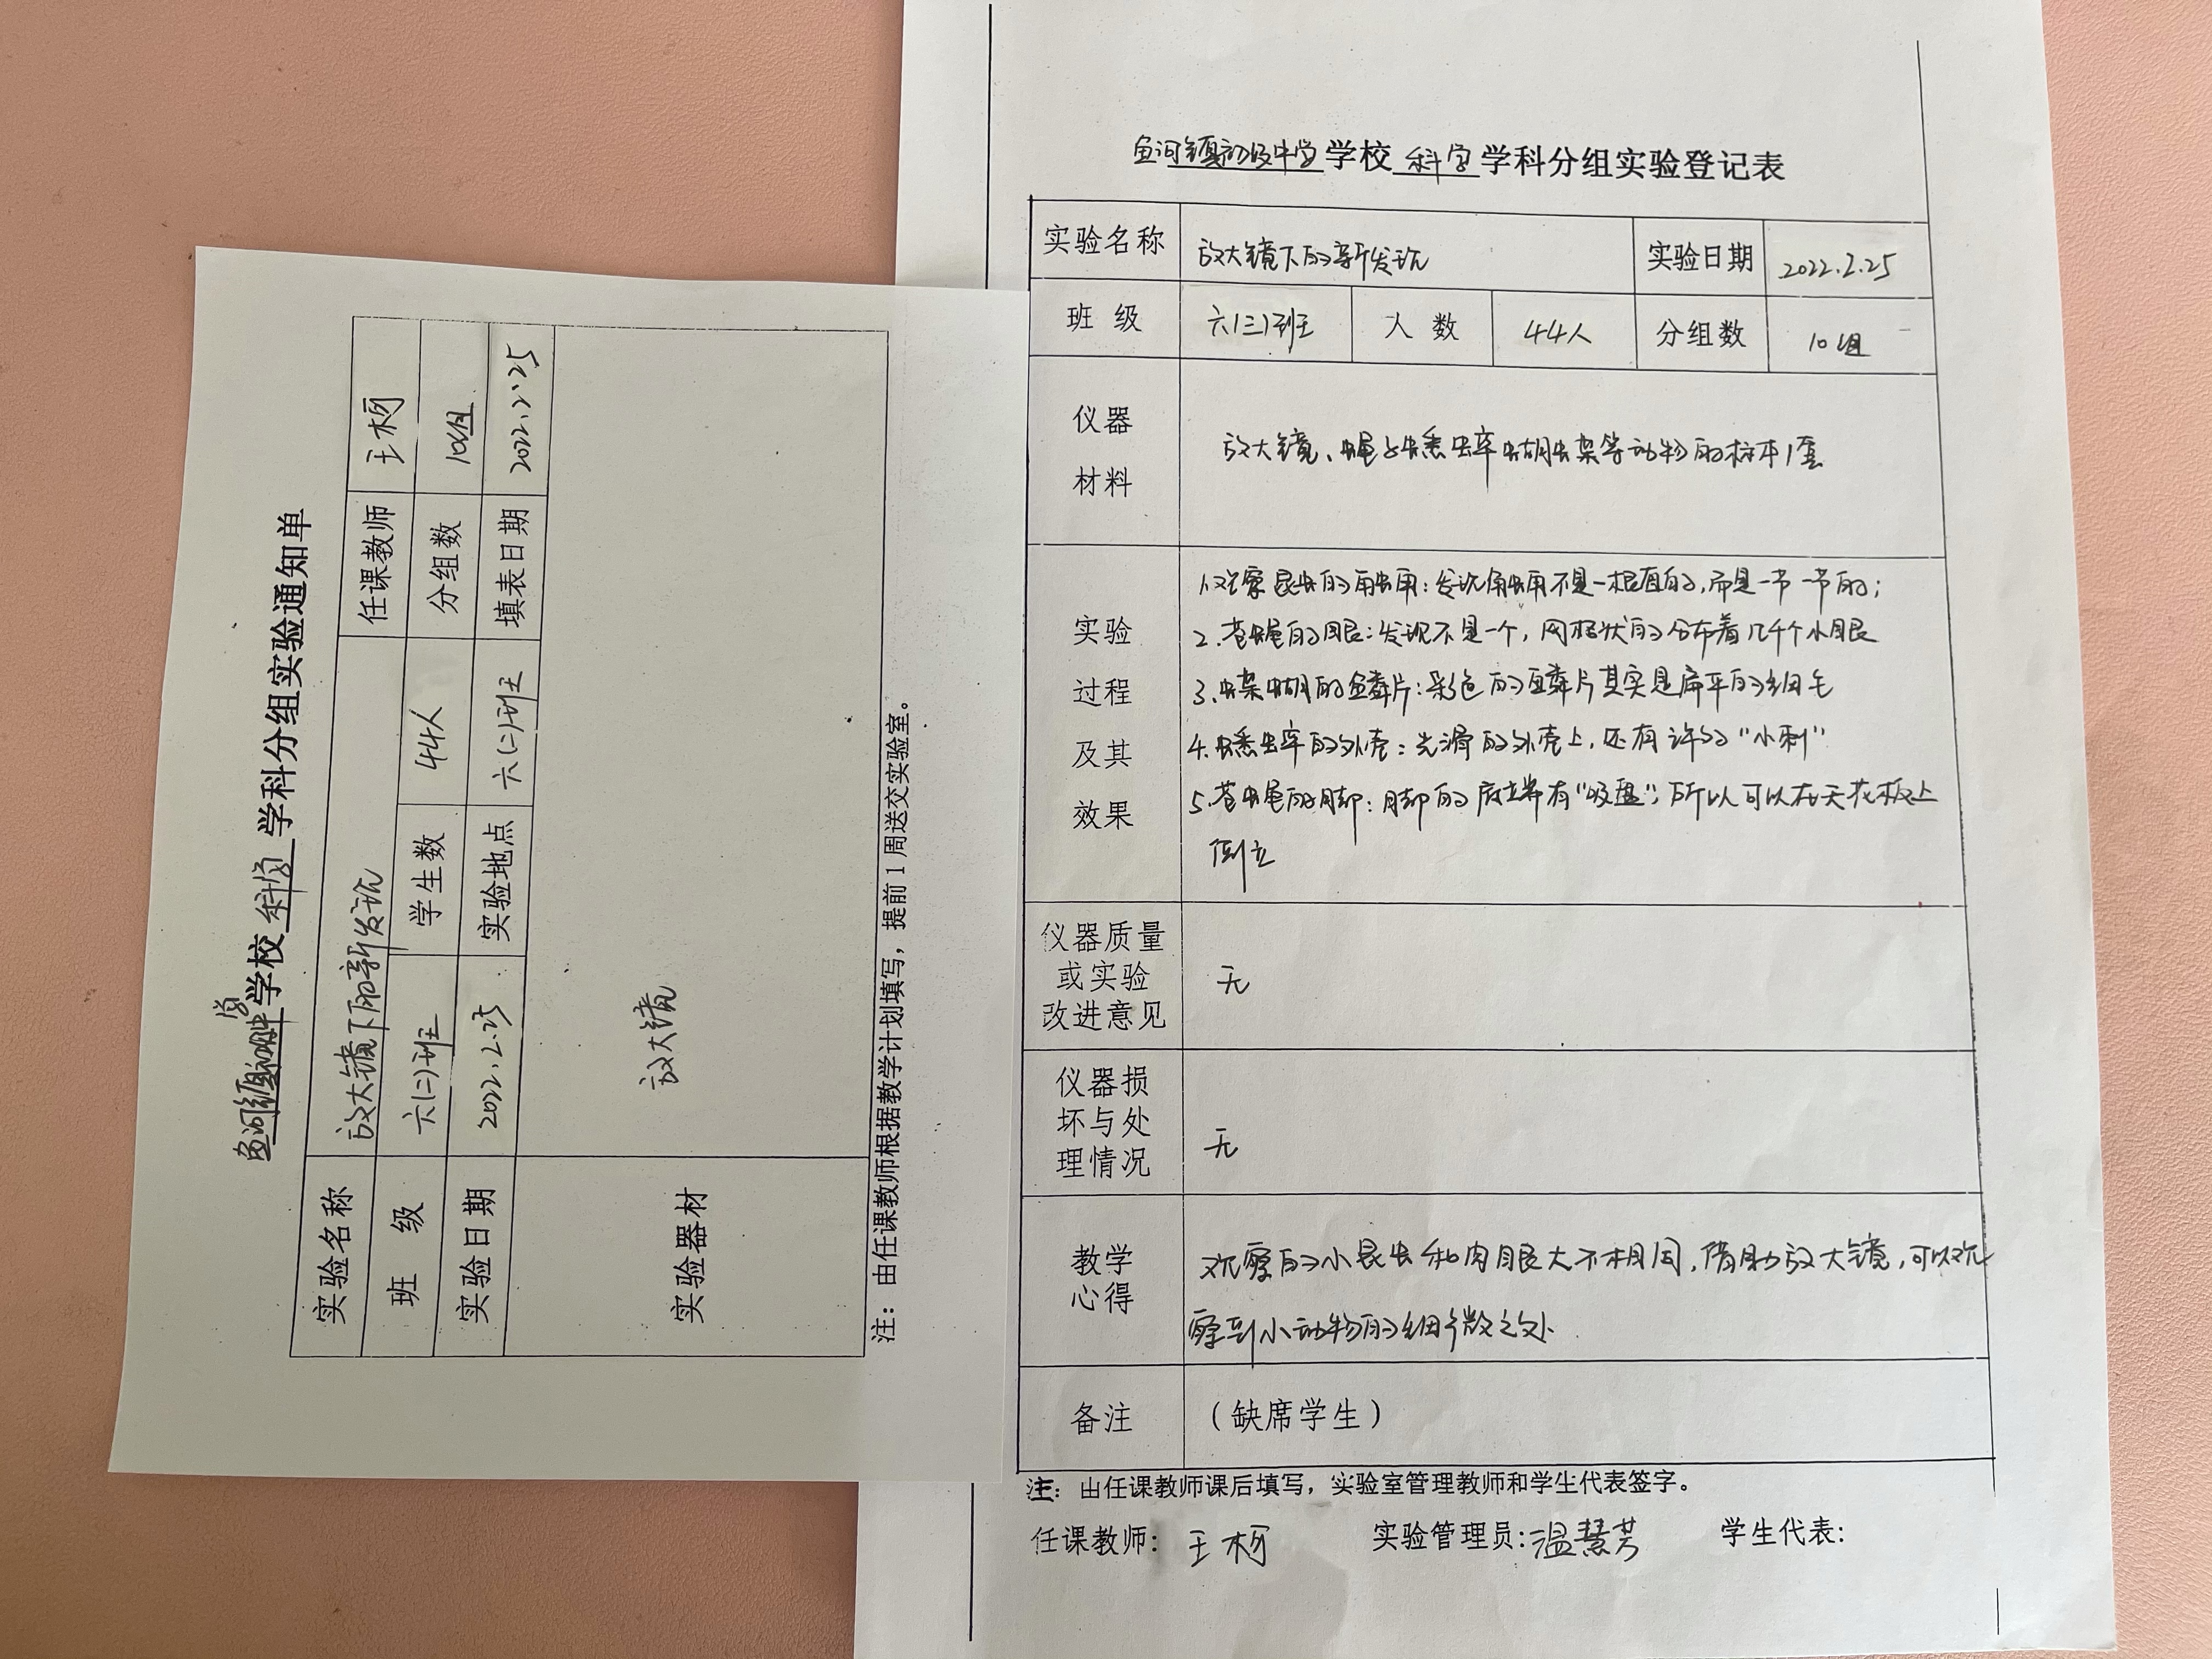 鱼河镇初级中学学校科学学科分组实验通知单
实验名称 放大镜下的新发现 任课教师 王柯
班 级 六(二)班 学生数 44人 分组数 10组
实验日期 2022.2.25 实验地点 六(二)班 填表日期 2022.2.25
实验器材 放大镜
注：由任课教师根据教学计划填写，提前1周送交实验室。
鱼河镇初级中学学校科学学科分组实验登记表
实验名称 放大镜下的新发现 实验日期 2022.2.25
班 级 六(三)班 人 数 44人 分组数 10组
仪器
材料
放大镜、蝇子蟋蟀蝴蝶等动物的标本1套
实验
过程
及其
效果
1.观察昆虫的触角：发现角触不是一根直的，而是一节一节的；
2.苍蝇的眼：发现不是一个，网格状的分布着几千个小眼
3.蝶蝴的鳞片：彩色的鳞片其实是扁平的细毛
4.蟋蟀的外壳：光滑的外壳上，还有许多“小刺”
5.苍蝇的脚：脚的底端有“吸盘”，所以可以在天花板上
倒立
仪器质量
或实验
改进意见
无
仪器损
坏与处
理情况
无
教学
心得
观察的小昆虫和肉眼大不相同，借助放大镜，可以观
察到小动物的细微之处.
备注 （缺席学生）
注：由任课教师课后填写，实验室管理教师和学生代表签字。
任课教师：王柯 实验管理员：温慧芳 学生代表：